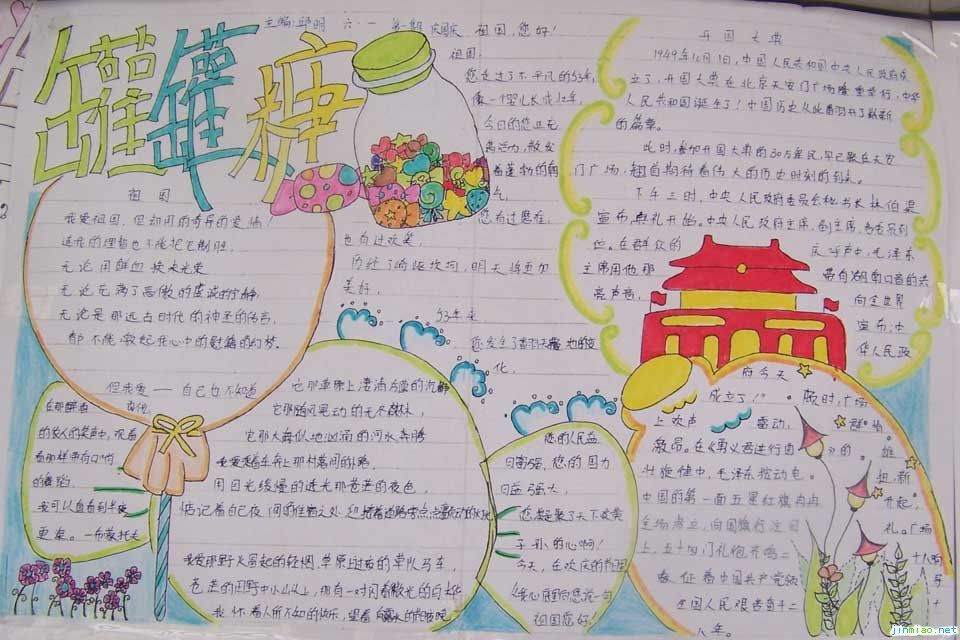 主编:邱明 六·一 第一期 庆国庆
罐罐糖
祖国
我爱祖国,但却用的奇异的爱情!
连我的理智也不能把它制胜。
无论用鲜血换来光荣
无论充满了高傲的虔诚的宁静
无论是那远古时代的神圣的传言
都不能激起我心中的慰藉的幻梦。
但我爱——自己也不知道
它那草原上凄清冷漠的沉静
它那随风晃动的无尽森林,
它那大海似地汹涌的河水奔腾
我爱乘着车奔上那村落间的小路
用目光缓慢的透过那苍茫的夜色,
惦记着自己夜间的住宿之处
我爱那野火冒起的轻烟,草原上过夜的草队马车,
苍茫的田野中小山头上,那有一对闪着微光的白桦
我怀着人所不知的快乐,望着
在那醉酒
的农人的笑声中,观看
着那样带有口哨
的舞蹈,
我可以直看到半夜
更深。——莱蒙托夫
祖国,您好!
祖国
您走过了不平凡的53年,
像一个婴儿长成壮年,
今日的您正充
满活力,散发
着蓬勃的
您有过磨难,
也有过欢笑,
历经了崎岖坎坷,明天将更加
美好,
53年来
化,
您的人民益
日富强,您的国力
日益强大,
您凝聚了天下炎黄
子孙的心啊!
今天,在欢庆的节日
我心底里向您说一句
祖国您好!
开国大典
1949年10月1日,中国人民共和国中央人民政府成
立了,开国大典在北京天安门广场隆重举行,中华
人民共和国诞生了!中国历史从此翻开了崭新
的篇章。
此时,参加开国大典的30万军民,早已聚在天安
门广场,翘首期待着伟大的历史时刻的到来。
下午三时,中央人民政府委员会秘书长林伯渠
宣布典礼开始。中央人民政府主席、副主席、各委员到
位。在群众的 庆呼声中,毛泽东
主席用他那 带有湖南口音的共
亮声音, 向全世界
宣布:中
华人民政
府今天
成立了!”。顷时,广场
上欢声 雷动,群情
激昂。在《义勇军进行曲》的雄
壮旋律中,毛泽东按动电扭,新
中国的第一面五星红旗冉冉升起,
广场
上,五十四门礼炮齐鸣二十八响
象征着中国共产党领导
全国人民艰苦奋斗二十
八年。
jinmiao.net